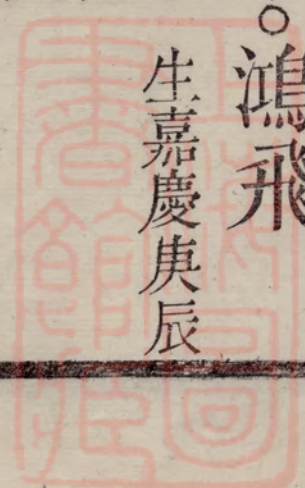 ○鴻飛
生嘉慶庚辰